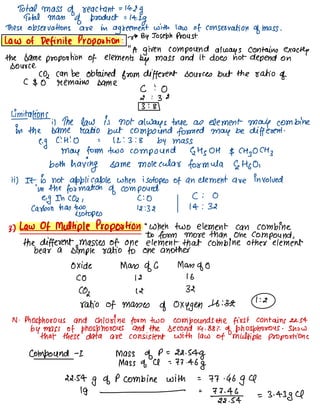 Total mass of reactant = 14.2g
Total mass of product = 14.2g
These observations are in agreement with law of conservation of mass.
Law of Definite Proportion: → By Joseph Proust
"A given compound always contains exactly
the same proportion of elements by mass and it does not depend on
source.
CO2 can be obtained from different sources but the ratio of
C & O remains same
C : O
12 : 32
3 : 8
Limitations:
i) The law is not always true as element may combine
in the same ratio but compound formed may be different.
eg C:H:O = 12:3:8 by mass
may form two compound C2H5OH & CH3OCH3
both having same molecular formula C2H6O,
ii) It is not applicable when isotopes of an element are involved
in the formation of compound
eg In CO2, C:O C : O
Carbon has two isotopes 12:32 14 : 32
3) Law Of Multiple Proportion "When two element can combine
to form more than one compound,
the different masses of one element that combine other element
bear a simple ratio to one another
Oxide Mass of C Mass of O
CO 12 16
CO2 12 32
ratio of masses of Oxygen 16:32 1:2
N. Phosphorous and chlorine form two compounds the first contains 22.54
by mass of phosphorous and the second 14.88% of phosphorous. Show
that these data are consistent with law of multiple proportions
Compound -I Mass of P = 22.54g
Mass of Cl = 77.46g
22.54 g of P combine with = 77.46 g Cl
1g = 77.46 / 22.54 = 3.43g Cl